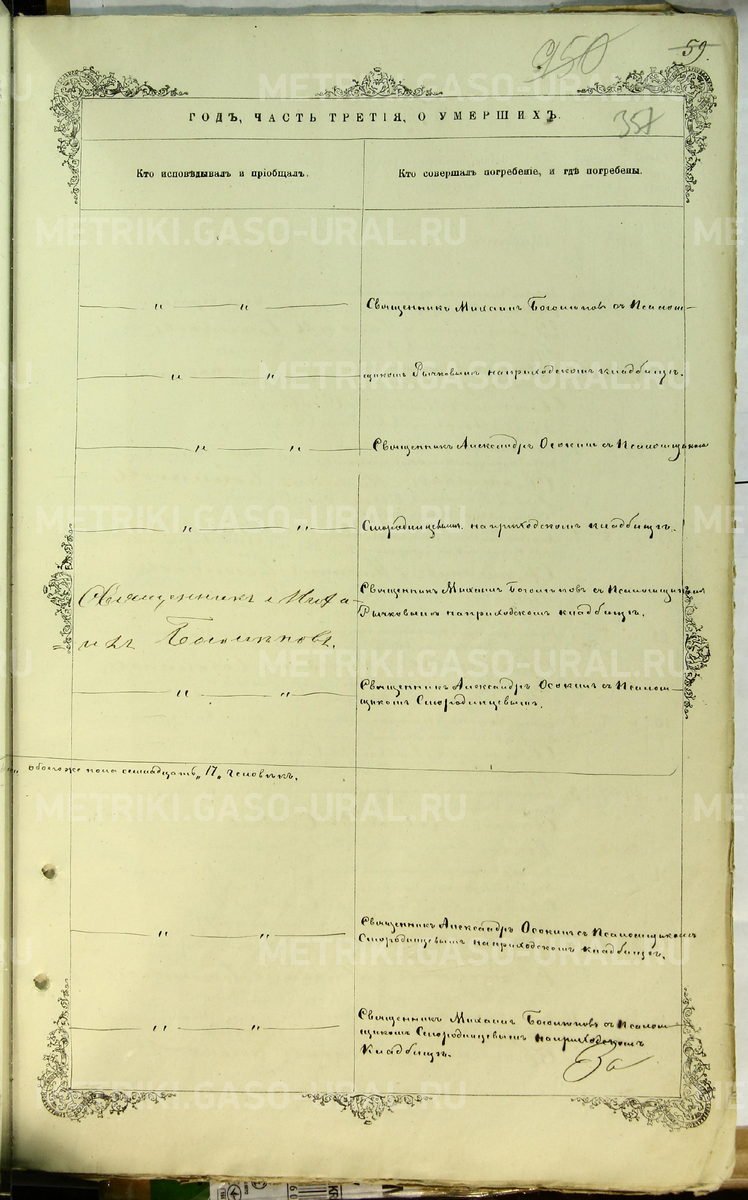 950
59.
ГОДЪ, ЧАСТЬ ТРЕТІЯ, О УМЕРШИХЪ.
358
Кто исповѣдывалъ и пріобщалъ.
Кто совершалъ погребеніе, и гдѣ погребены.
METRIKI.GASO-URAL.RU
— „ — „ —
Священникъ Михаилъ Боголѣповъ съ Псалом-
— „ — „ —
щикомъ Рычковымъ на приходскомъ кладбищѣ.
METRIKI.GASO-URAL.RU
— „ — „ —
Священникъ Александръ Осокинъ съ Псаломщикомъ
— „ — „ —
Смородинцевымъ на приходскомъ кладбищѣ.
METRIKI.GASO-URAL.RU
Священникъ Миха-
илъ Боголѣповъ.
Священникъ Михаилъ Боголѣповъ съ Псаломщикомъ
Рычковымъ на приходскомъ кладбищѣ.
METRIKI.GASO-URAL.RU
— „ — „ —
Священникъ Александръ Осокинъ съ Псалом-
щикомъ Смородинцевымъ.
обоегоже пола семнадцать „17„ человѣкъ.
METRIKI.GASO-URAL.RU
— „ — „ —
Священникъ Александръ Осокинъ съ Псаломщикомъ
Смородинцевымъ на приходскомъ кладбищѣ.
METRIKI.GASO-URAL.RU
— „ — „ —
Священникъ Михаилъ Боголѣповъ съ Псалом-
щикомъ Смородинцевымъ на приходскомъ
Кладбищѣ.
За
METRIKI.GASO-URAL.RU